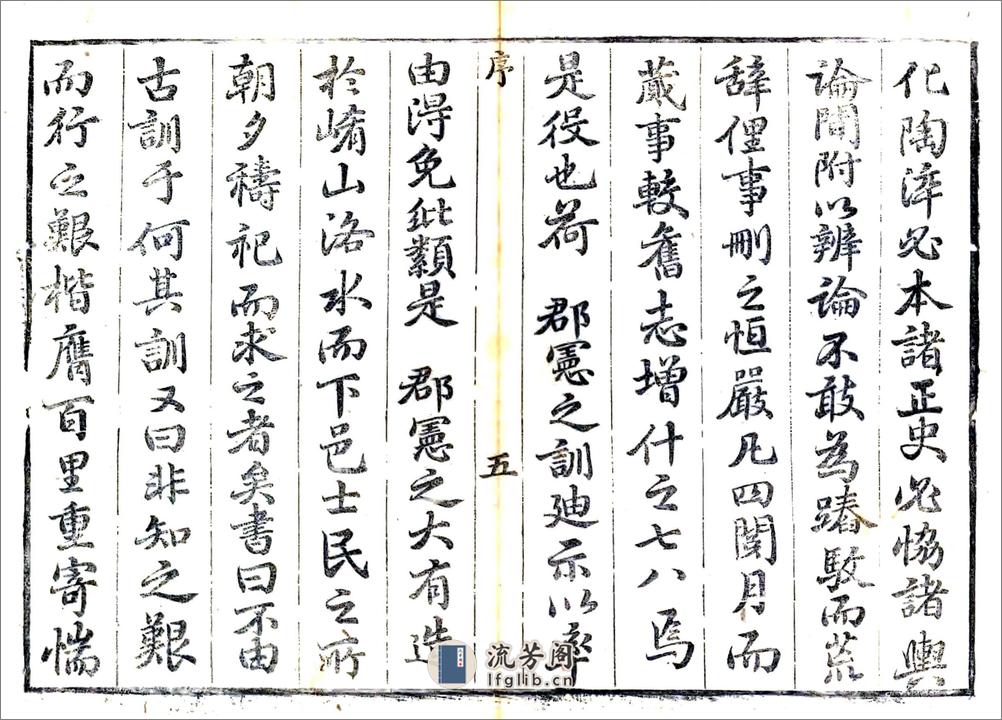 化陶淬必本諸正史必恊諸輿
論間附以辨論不敢為踳駁而荒
辭俚事刪之恒嚴凡四閱月而
蕆事較舊志增什之七八焉
是役也荷 郡憲之訓廸示以率
序 五
由得免紕纇是 郡憲之大有造
於崤山洛水而下邑士民之所
朝夕禱祀而求之者矣書曰不由
古訓于何其訓又曰非知之艱
而行之艱楷膺百里重寄惴
流芳阁
lfglib.cn